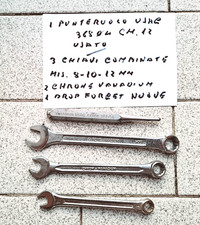 1 PUNTERUOLO USAG
365 DL CM. 12
USATO
3 CHIAVI COMBINATE
MIS. 8-10-12 MM
2 CHROME VANADIUM
1 DROP FORGET NUOVE